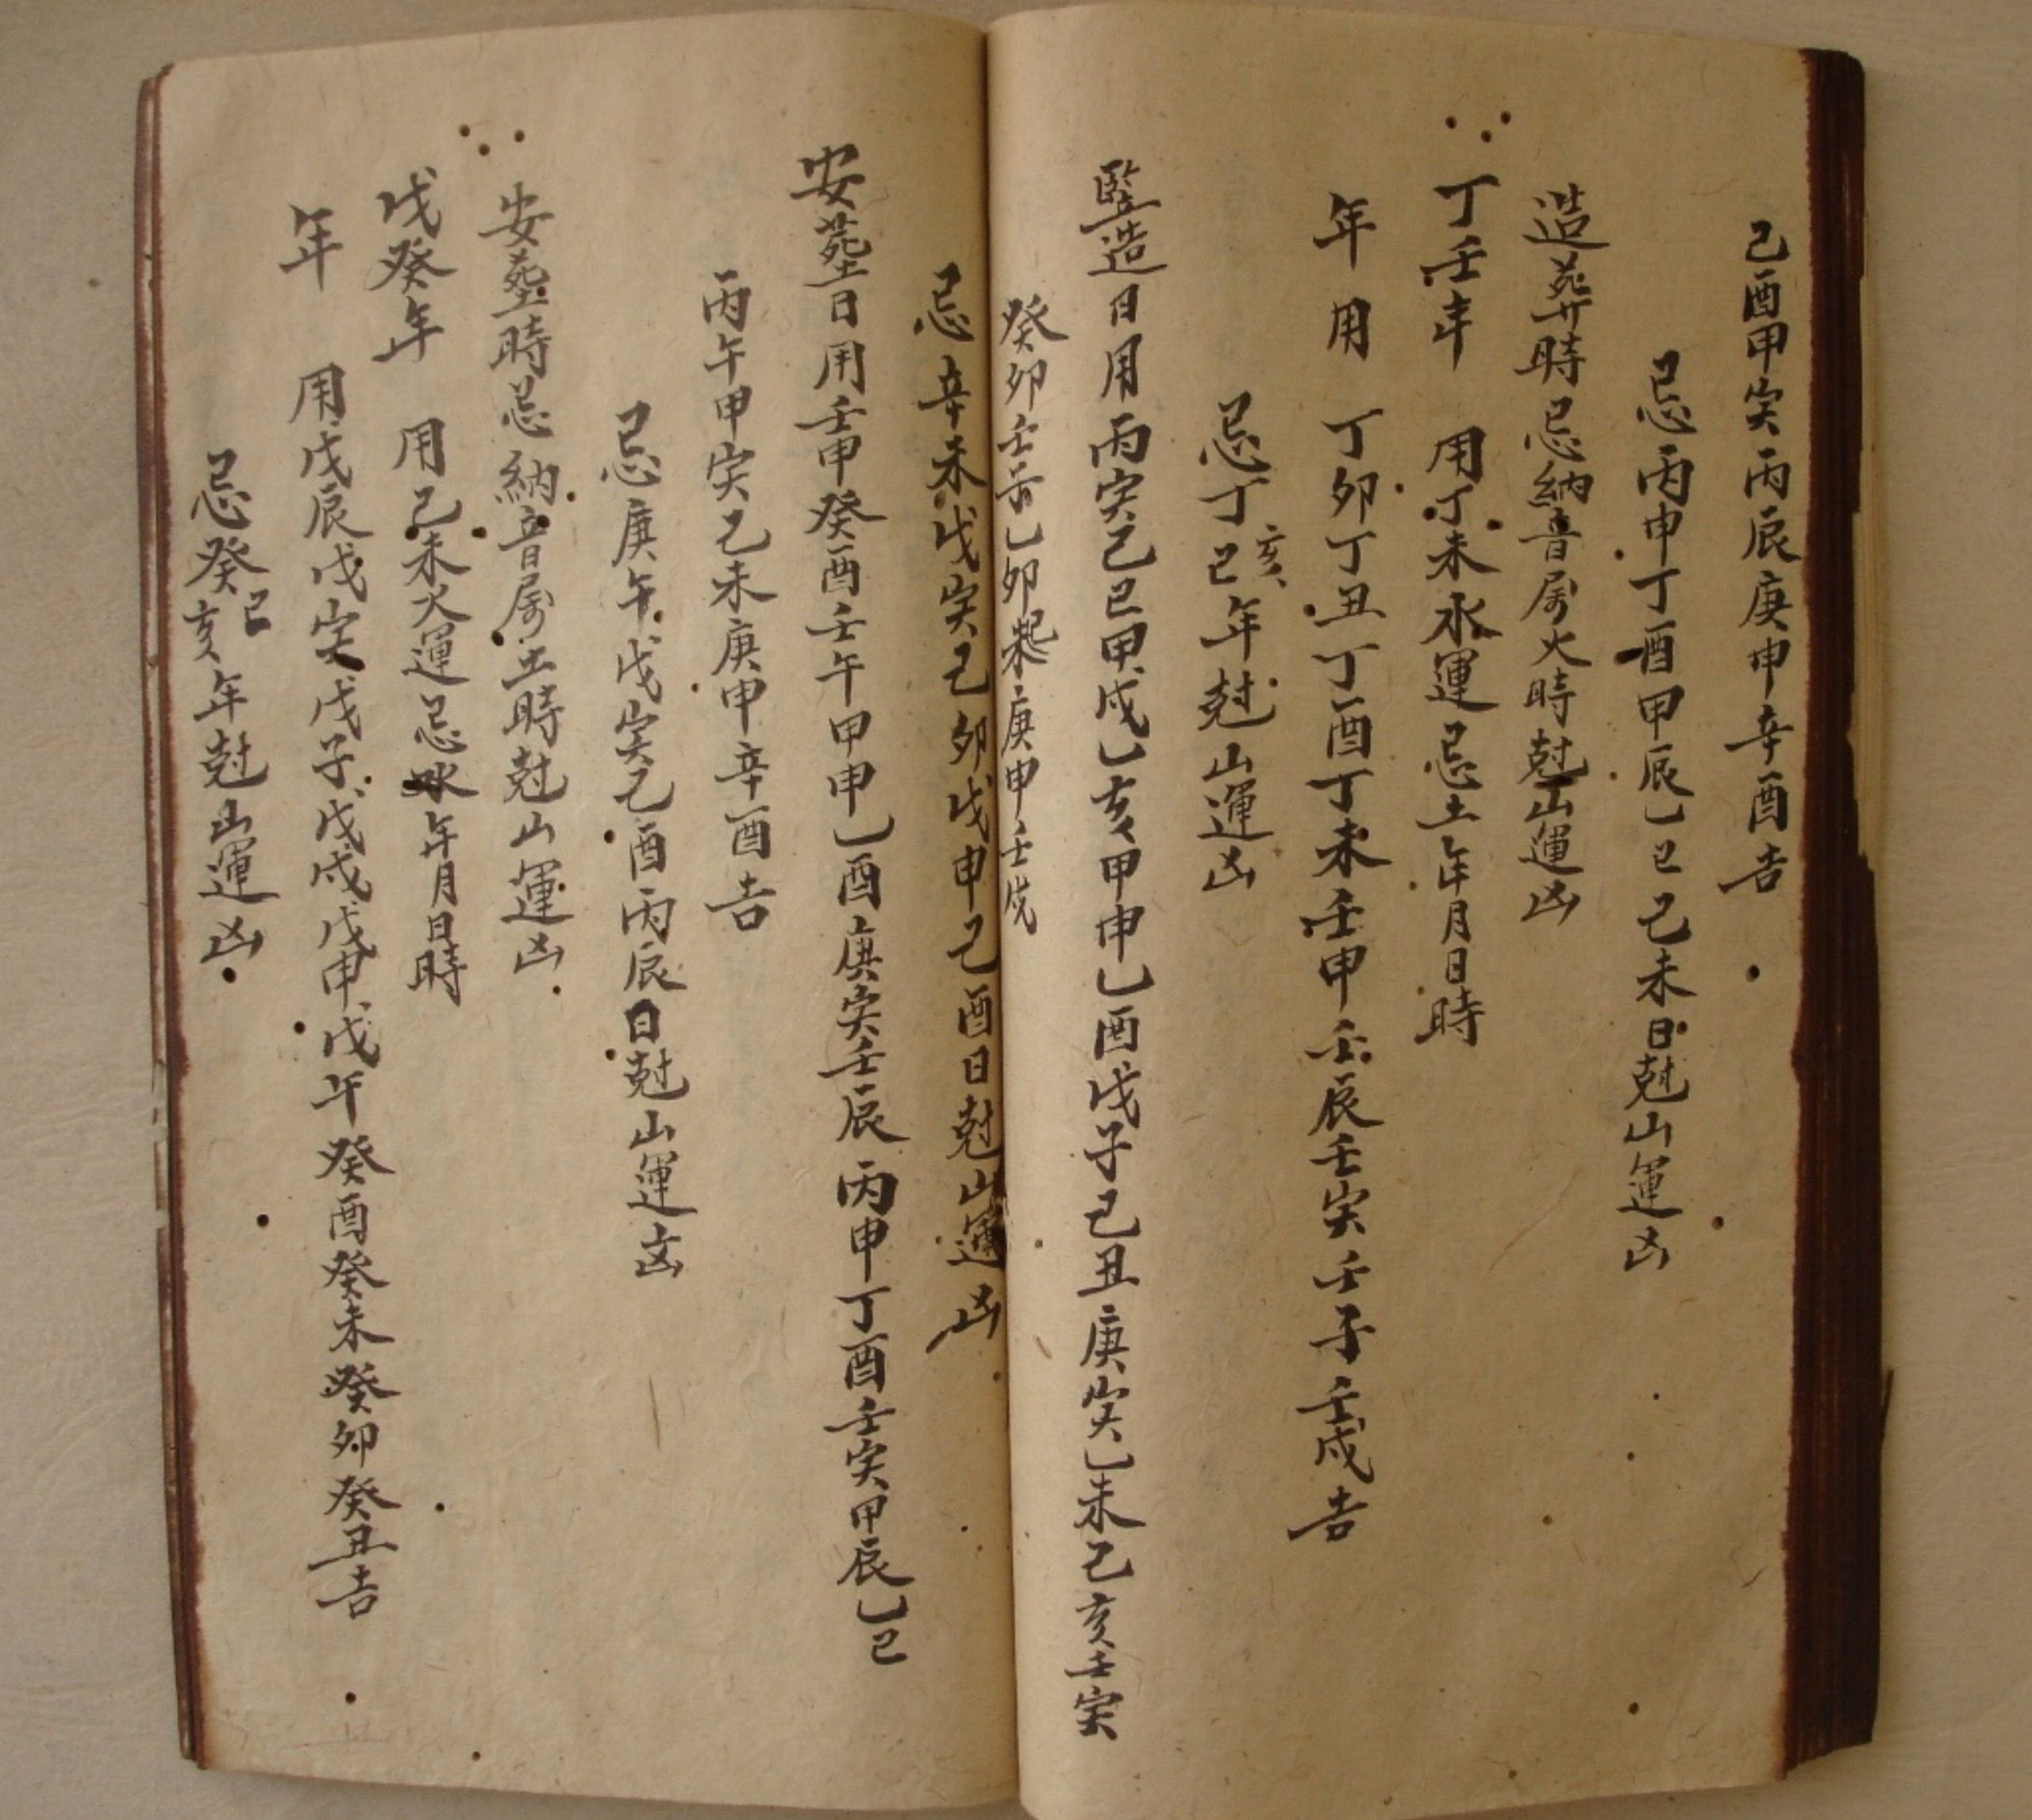 己酉甲寅丙辰庚申辛酉吉
忌丙申丁酉甲辰乙巳己未日尅山運凶
造葬時忌納音屬火時尅山運凶
丁壬年 用丁未水運忌土年月日時
年用 丁卯丁丑丁酉丁未壬申壬辰壬寅壬子壬戌吉
忌丁巳亥年尅山運凶
豎造日用丙寅己巳甲戌乙亥甲申乙酉戊子己丑庚寅乙未己亥壬寅
癸卯壬子乙卯起未庚申壬戌
忌辛未戊寅己卯戊申己酉日尅山運凶
安葬日用壬申癸酉壬午甲申乙酉庚寅壬辰丙申丁酉壬寅甲辰乙巳
丙午甲寅乙未庚申辛酉吉
忌庚午戊寅乙酉丙辰日尅山運凶
安葬時忌納音屬土時尅山運凶
戊癸年 用己未火運忌水年月日時
年 用戊辰戊寅戊子戊戌戊申戊午癸酉癸未癸卯癸丑吉
忌癸巳亥年尅山運凶